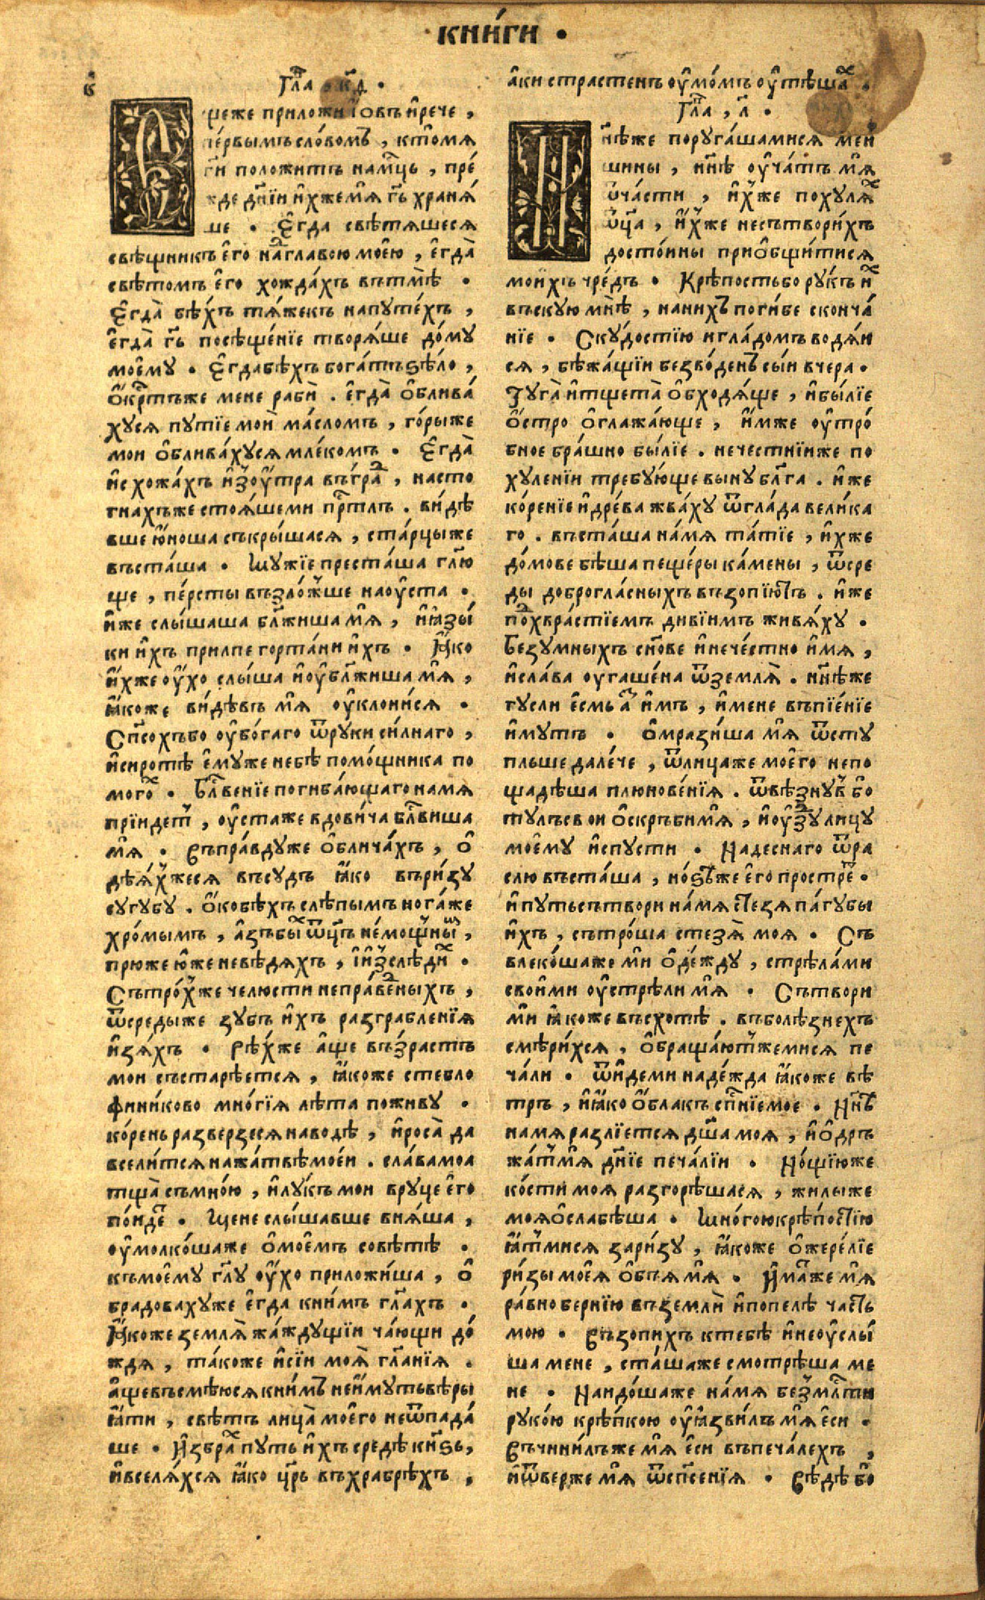 книги ·
Гла҃, к҃д ·
реже приложи і҆овъ и҆рече ,
пе́рвымъ сло́вомъ , кто́мя
положитъ нам҃ць , пре́
жде дн҃їи и҆хжемѧ г҃ъ храня́
ше · Е҆гда свѣтѧшеся
свѣщникъ е҆го наглавою мое́ю , е҆гда̀
свѣтомъ е҆го хожда́хъ вътмѣ ·
Е҆гда̀ бѣ́хъ тѧ́жекъ напуте́хъ ,
е҆гда̀ г҃ъ посѣще́нїе творѧ́ше до́му
мое́му · Е҆гдабѣхъ бога́тъ ѕѣло ,
о҆́кр҃тъже мене раби . е҆гда̀ о҆блива́
хуся путїе мои̇̀ ма́сломъ , го́рыже
мои о҆блива́хуся мле́комъ · Е҆гда̀
и҆схожа́хъ и҆зоу҆́тра въгра , насто
гнахъже стоѧ́щеми пр҃тлъ . ви́дѣ
вше ю҆́ноша съкры́шася , ста́рцыже
въста́ша · Мужїе преста́ша гл҃ю
ще , пе́рсты възло́жше наоу҆ста ·
и҆же слы́шаша бл҃жиша мѧ , и҆ꙗзы́
ки и҆́хъ прилпе горта́ни и҆́хъ · Ꙗ҆́ко
и҆́хже оу҆́хо слы́ша и҆оу҆бл҃жиша мѧ ,
ꙗ҆́коже ви́дѣвъ мѧ оу҆клони́ся ·
Сп҃сохъбо оу҆бо́гаго ѿруки си́лнаго ,
и҆сиротѣ е҆муже небѣ помо́щника по
мого · Бл҃венїе погиба́ющаго намѧ
прїидет , оу҆стаже вдови́ча бл҃виша
мѧ · Въпра́вдуже о҆блича́хъ , о҆
дѣѧхжеся въсудъ ꙗ҆ко въри́зу
сугубу . О҆́кобѣхъ слѣпымъ нога́же
хро́мымъ , а҆зъбы ѿц҃ъ не́мощны ,
прюже ю҆́же невѣдяхъ , і҆и҆зслѣди ·
Сътро́хже челюсти непра́веныхъ ,
ѿсредыже зубъ и҆́хъ разграбленїя
и҆зѧ́хъ · Рѣ́хже а҆́ще възрастъ
мои състарѣется , ꙗ҆́коже стебло
финиково мно́гїя лѣта поживу ·
ко́рень разверзеся наводѣ , и҆роса̀ да
вселится нажа́твѣ мое́и . сла́вамоа
тща̀ съмно́ю , и҆лукъ мои вруце е҆го
по́иде · Мене слы́шавше внѧша ,
оу҆молко́шаже о҆мое́мъ совѣтѣ ·
къмое́му гл҃у оу҆́хо приложи́ша , о҆
брадовахуже е҆гда книмъ гл҃ахъ ·
Ꙗ҆́коже землѧ̀ жа́ждущїи ча́ющи до́
ждя , та́коже и҆сїи моѧ̀ гл҃анїя .
а҆́щевъсмѣюся книмъ неи́мутъ вѣры
ꙗ҆ти , свѣтъ лица̀ мое́го неѿпада́
ше · И҆збра путь и҆́хъ средѣ кн҃ѕь ,
и҆вселѧ́хся ꙗ҆ко цр҃ь въхрабрѣхъ ,
а҆́ки страстенъ оу҆мо́мъ оу҆тѣша .
Гла҃ , л҃ ·
Ннѣже поруга́шамися меи
шины , ннѣ оу҆ча́тъ мѧ
ѿчасти , и҆́хже похуля
ѿц҃а , и҆́хже несътвори́хъ
досто́ины прио҆бщитися
мои́хъ чре́дъ · Крѣпостьбо рукъ и҆
въскую мнѣ , наних поги́бе сконча́
нїе · Скудостїю и҆гла́домъ водѧ́и
ся , бѣжа́щїи безво́денъ сы́и вчера .
Туга̀ и҆тщета̀ о҆бходѧ́ще , и҆былїе
о҆́стро о҆глажа́юще , и҆мже оу҆тро́
бное бра́шно бы́лїе . нечестнїиже по
хуленїи требую́ще выну бл҃га . и҆же
ко́ренїе и҆дре́ва жва́ху ѿгла́да велика
го . въста́ша на́мя та́тїе , и҆хже
до́мове бѣ́ша пеще́ры ка́мены , ѿсре
ды доброгла́сныхъ възопїю́тъ . и҆же
похвра́стїемъ дивїимъ живѧ́ху ·
Безумныхъ сн҃ове и҆нече́стно и҆мя ,
и҆сла́ва оугаше́на ѿземля̀ . ннѣже
гусли е҆смьа имъ , и҆мене въпїе́нїе
и҆мутъ · О҆мрази́ша мѧ ѿсту
пльше дале́че , ѿлицаже мое́го непо
щадѣша плюнове́нїя . ѿвѣзнув бо
тулъсвои о҆скръбимѧ , и҆оу҆зду лицу
мое́му и҆спусти · Надеснаго ѿра
слю въста́ша , но́ѕѣже е҆го простре .
и҆путьсътвори на́мя стезя па́губы
и҆хъ , сътро́ша стезѧ̀ моя · Съ
влеко́шаже ми о҆де́жду , стрѣла́ми
свои́ми оу҆стрѣли мѧ · Сътвори
ми ꙗ҆́коже въсхотѣ . въболѣзнехъ
смѣри́хся , о҆браща́ютжемися пе
ча́ли · ѿидеми наде́жда ꙗ҆́коже вѣ
тръ , и҆ꙗко о҆блакъ сп҃нїемое · Ннѣ
намя разлїется дш҃а моя , и҆о҆дръ
жа́тмѧ дн҃їе печа́лїи · Но́щїюже
ко́сти моя разгорѣшася , жилыже
мояо҆слабѣша · Мно́гоюкрѣпостїю
ꙗ҆тмися зари́зу , ꙗ҆́коже о҆жере́лїе
ри́зы мое́я о҆бъя мѧ · И҆маже мѧ
ра́вно бернїю въземли̇̀ и҆попелѣ часть
мою · Възопихъ ктебѣ и҆неоу҆слы́
ша мене , ста́шаже смотрѣша ме
не · Наидо́шаже на́мя безмл҃сти
рукою крѣпкою оу҆ꙗ҆звилъ мѧ еси ·
Въчини́лъже мѧ еси въпеча́лехъ ,
и҆ѿверже мѧ ѿсп҃сенїя · Вѣдѣ бо